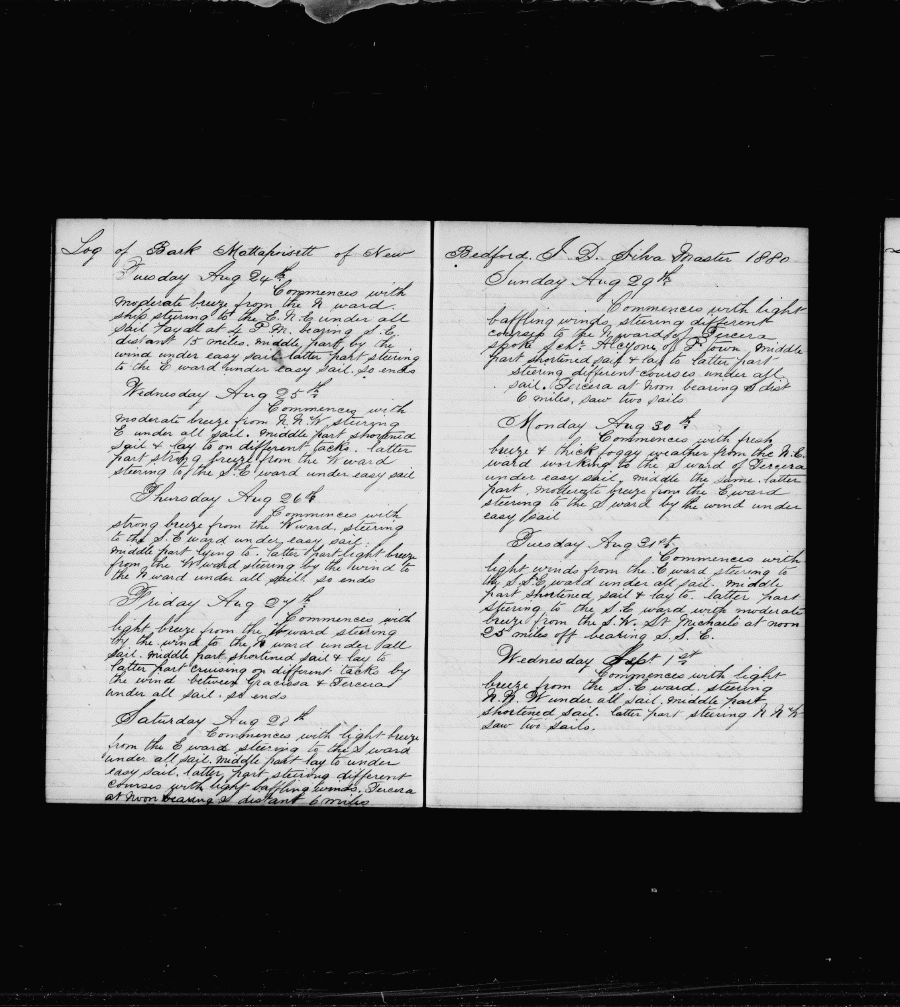 Log of Bark Mattapoisett of New
Tuesday Aug 24th
Commences with
moderate breeze from the N ward
ship steering to the E.N.E under all
sail Fayal at 4 P.M. bearing S.E
distant 15 miles. middle part by the
wind under easy sail latter part steering
to the E ward under easy sail. so ends
Wednesday Aug 25th
Commences with
moderate breeze from N.N.W. steering
E under all sail. middle part shortened
sail & lay to on different tacks. latter
part strong breeze from the W ward
steering to the S.E ward under easy sail
Thursday Aug 26th
Commences with
strong breeze from the W ward. steering
to the S.E ward under easy sail.
middle part lying to. latter part light breeze
from the W ward steering by the wind to
the N ward under all sail. so ends
Friday Aug 27th
Commences with
light breeze from the W ward steering
by the wind to the N ward under all
sail. middle part shortened sail & lay to
latter part cruising on different tacks by
the wind between Graciosa & Tercera
under all sail. so ends
Saturday Aug 28th
Commences with light breeze
from the E ward steering to the S ward
under all sail. middle part lay to under
easy sail. latter part steering different
courses with light baffling winds. Tercera
at Noon bearing S distant 6 miles
Bedford, J. D. Silva Master 1880
Sunday Aug 29th
Commences with light
baffling wind. steering different
courses to the N ward of Tercera
spoke Schr Alcyone of P town. middle
part shortened sail & lay to latter part
steering different courses under all
sail. Tercera at Noon bearing S dist
6 miles, saw two sails
Monday Aug 30th
Commences with fresh
breeze & thick foggy weather from the N.E.
ward working to the S ward of Tercera
under easy sail. middle the same. latter
part. moderate breeze from the E ward
steering to the S ward by the wind under
easy sail
Tuesday Aug 31st
Commences with
light winds from the E ward steering to
the S.S.E ward under all sail. middle
part shortened sail & lay to. latter part
steering to the S.E ward with moderate
breeze from the S.W. St Michaels at noon
25 miles off bearing S.S.E.
Wednesday Sept 1st
Commences with light
breeze from the S.E ward. steering
N.N.W under all sail. middle part
shortened sail. latter part steering N.N.W
saw two sails.